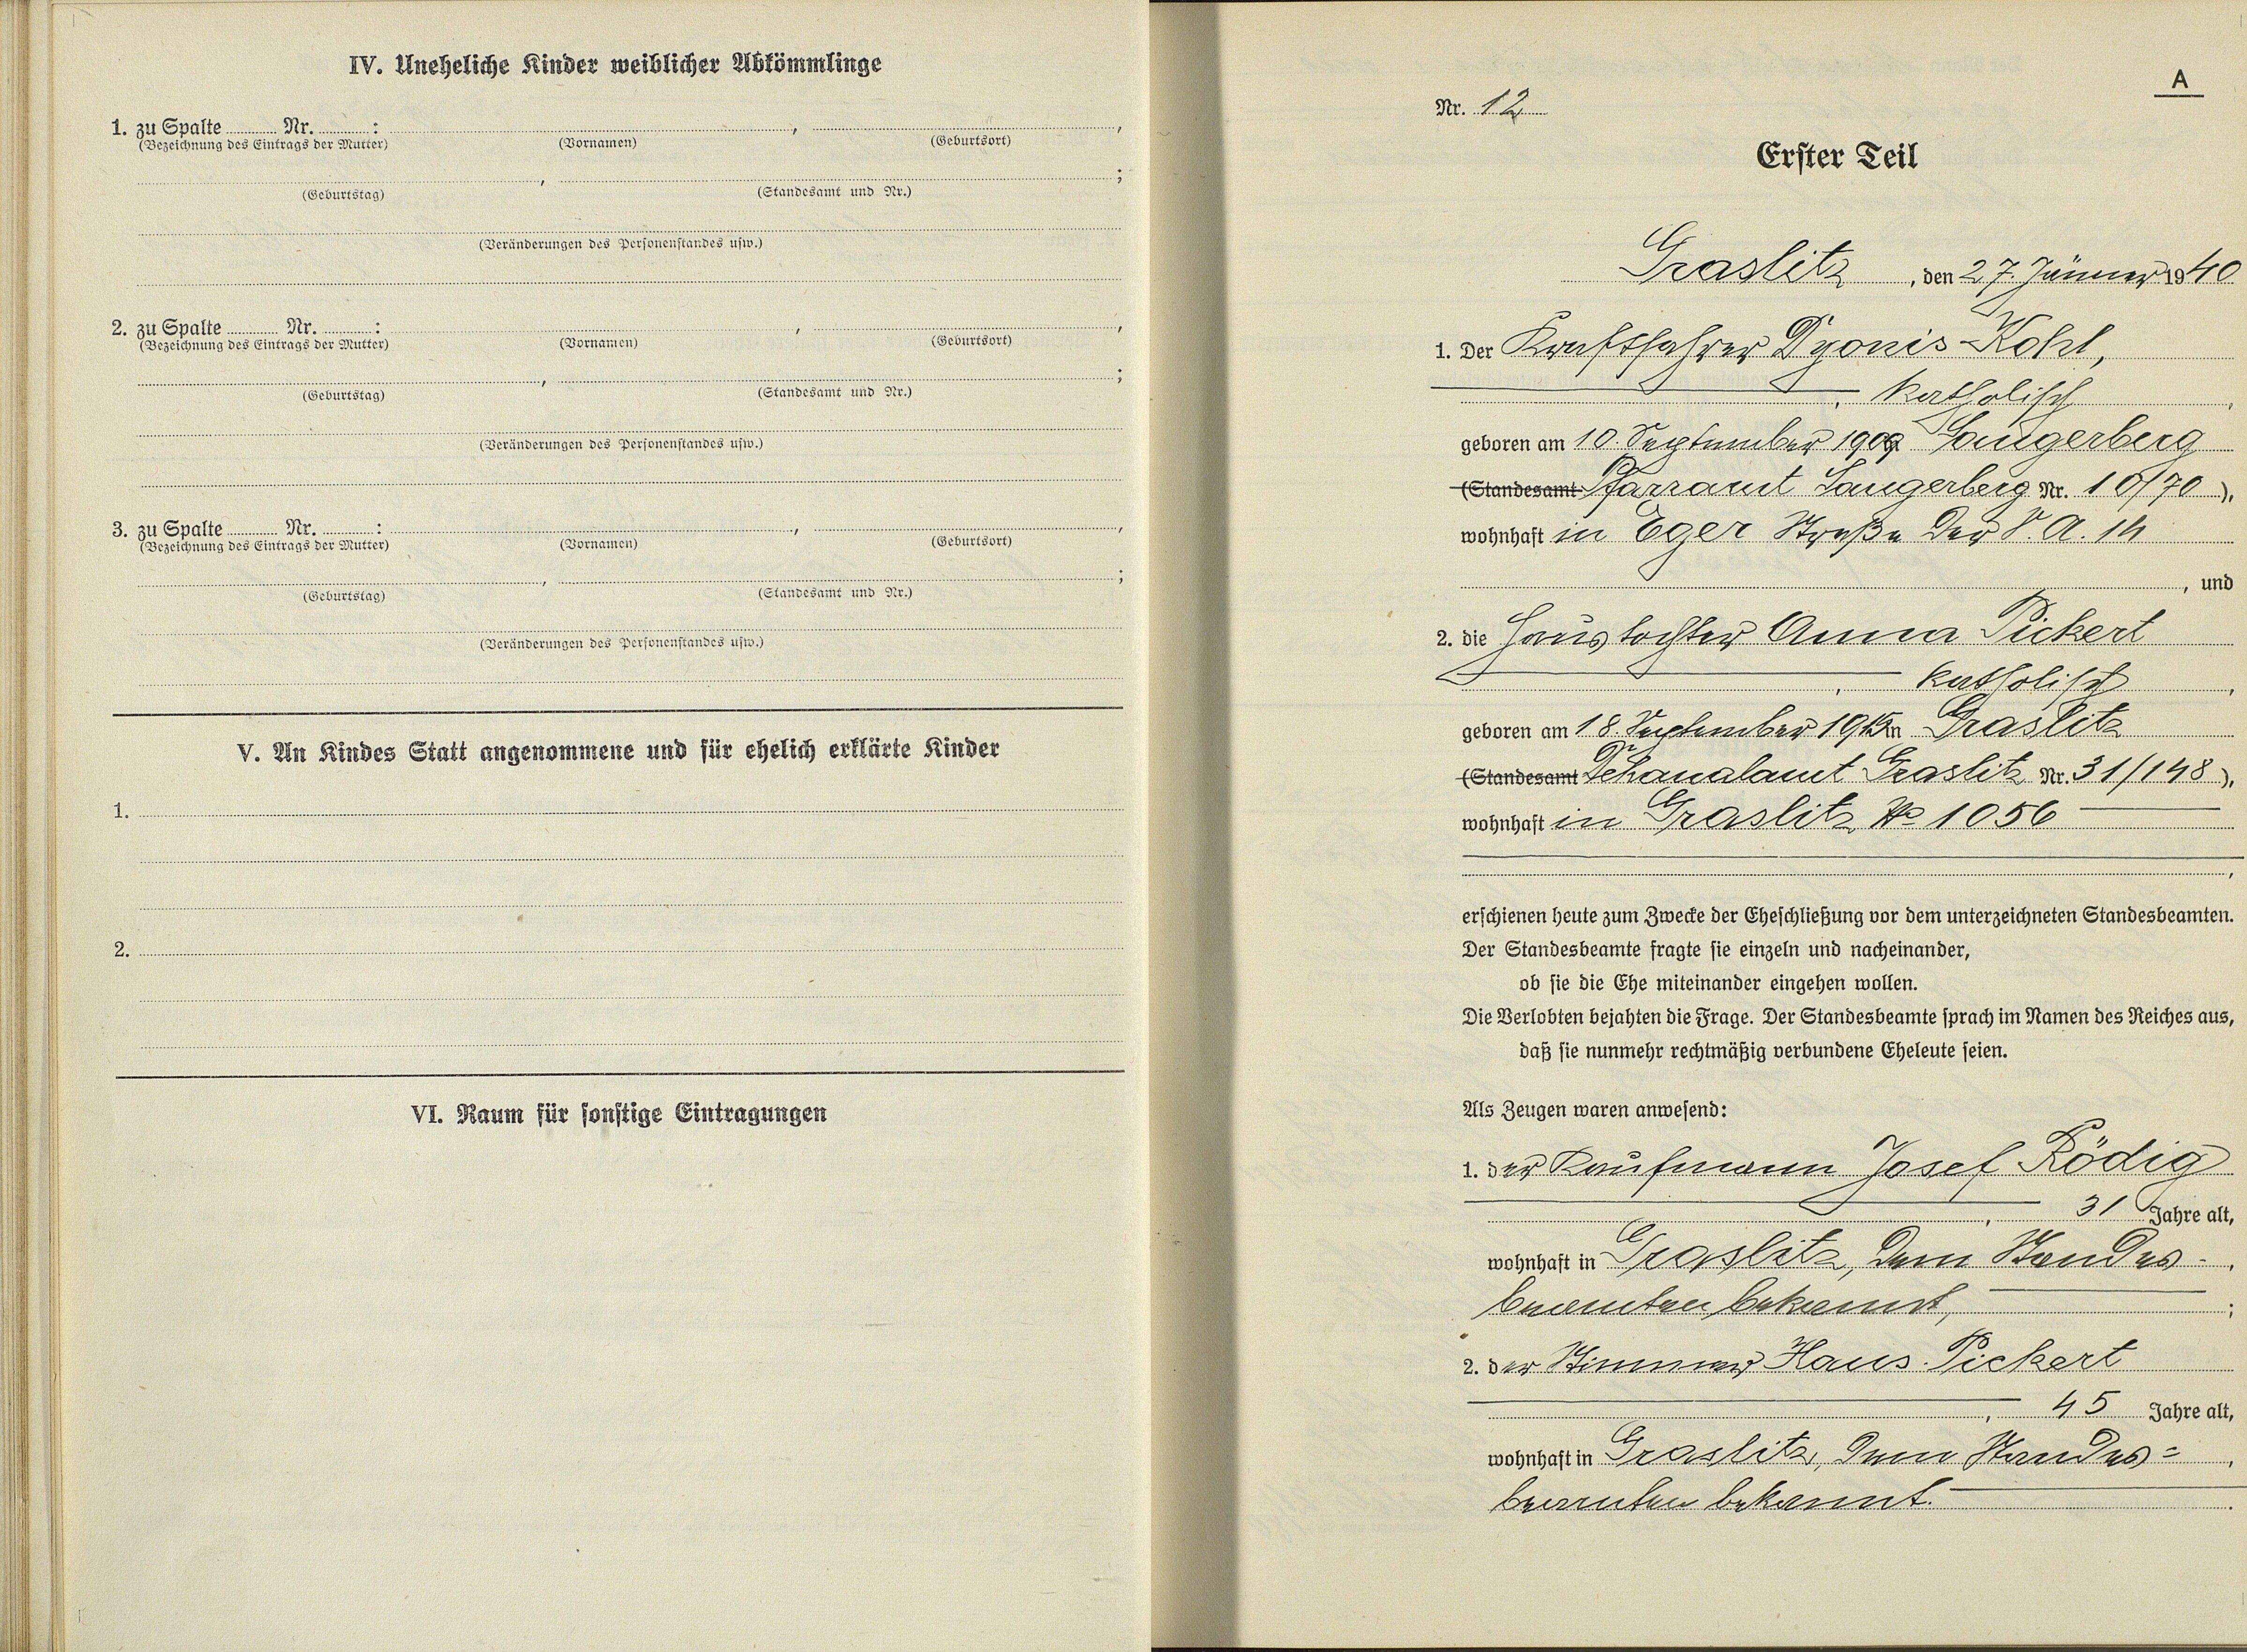 IV. Uneheliche Kinder weiblicher Abkömmlinge
1. zu Spalte ........ Nr. ........ : , ,
(Bezeichnung des Eintrags der Mutter) (Vornamen) (Geburtsort)
, ;
(Geburtstag) (Standesamt und Nr.)
(Veränderungen des Personenstandes usw.)
2. zu Spalte ........ Nr. ........ : , ,
(Bezeichnung des Eintrags der Mutter) (Vornamen) (Geburtsort)
, ;
(Geburtstag) (Standesamt und Nr.)
(Veränderungen des Personenstandes usw.)
3. zu Spalte ........ Nr. ........ : , ,
(Bezeichnung des Eintrags der Mutter) (Vornamen) (Geburtsort)
, ;
(Geburtstag) (Standesamt und Nr.)
(Veränderungen des Personenstandes usw.)
V. An Kindes Statt angenommene und für ehelich erklärte Kinder
1.
2.
VI. Raum für sonstige Eintragungen
A
Nr. 12
Erster Teil
Graslitz, den 27. Jänner 1940
1. Der Kraftfahrer Dyonis Kohl,
, katholisch,
geboren am 10. September 1909 Sangerberg
(Standesamt Pfarramt Sangerberg Nr. 10/70),
wohnhaft in Eger Straße der S. A. 14
, und
2. die Haustochter Anna Pickert
, katholisch,
geboren am 18. September in Graslitz
(Standesamt Dekanalamt Graslitz Nr. 31/148),
wohnhaft in Graslitz No 1056
,
erschienen heute zum Zwecke der Eheschließung vor dem unterzeichneten Standesbeamten.
Der Standesbeamte fragte sie einzeln und nacheinander,
ob sie die Ehe miteinander eingehen wollen.
Die Verlobten bejahten die Frage. Der Standesbeamte sprach im Namen des Reiches aus,
daß sie nunmehr rechtmäßig verbundene Eheleute seien.
Als Zeugen waren anwesend:
1. der Kaufmann Josef Rödig
, 31 Jahre alt,
wohnhaft in Graslitz, dem Standes-,
beamten bekannt, ;
2. der Stimmer Hans Pickert
, 45 Jahre alt,
wohnhaft in Graslitz, dem Standes=,
beamten bekannt.